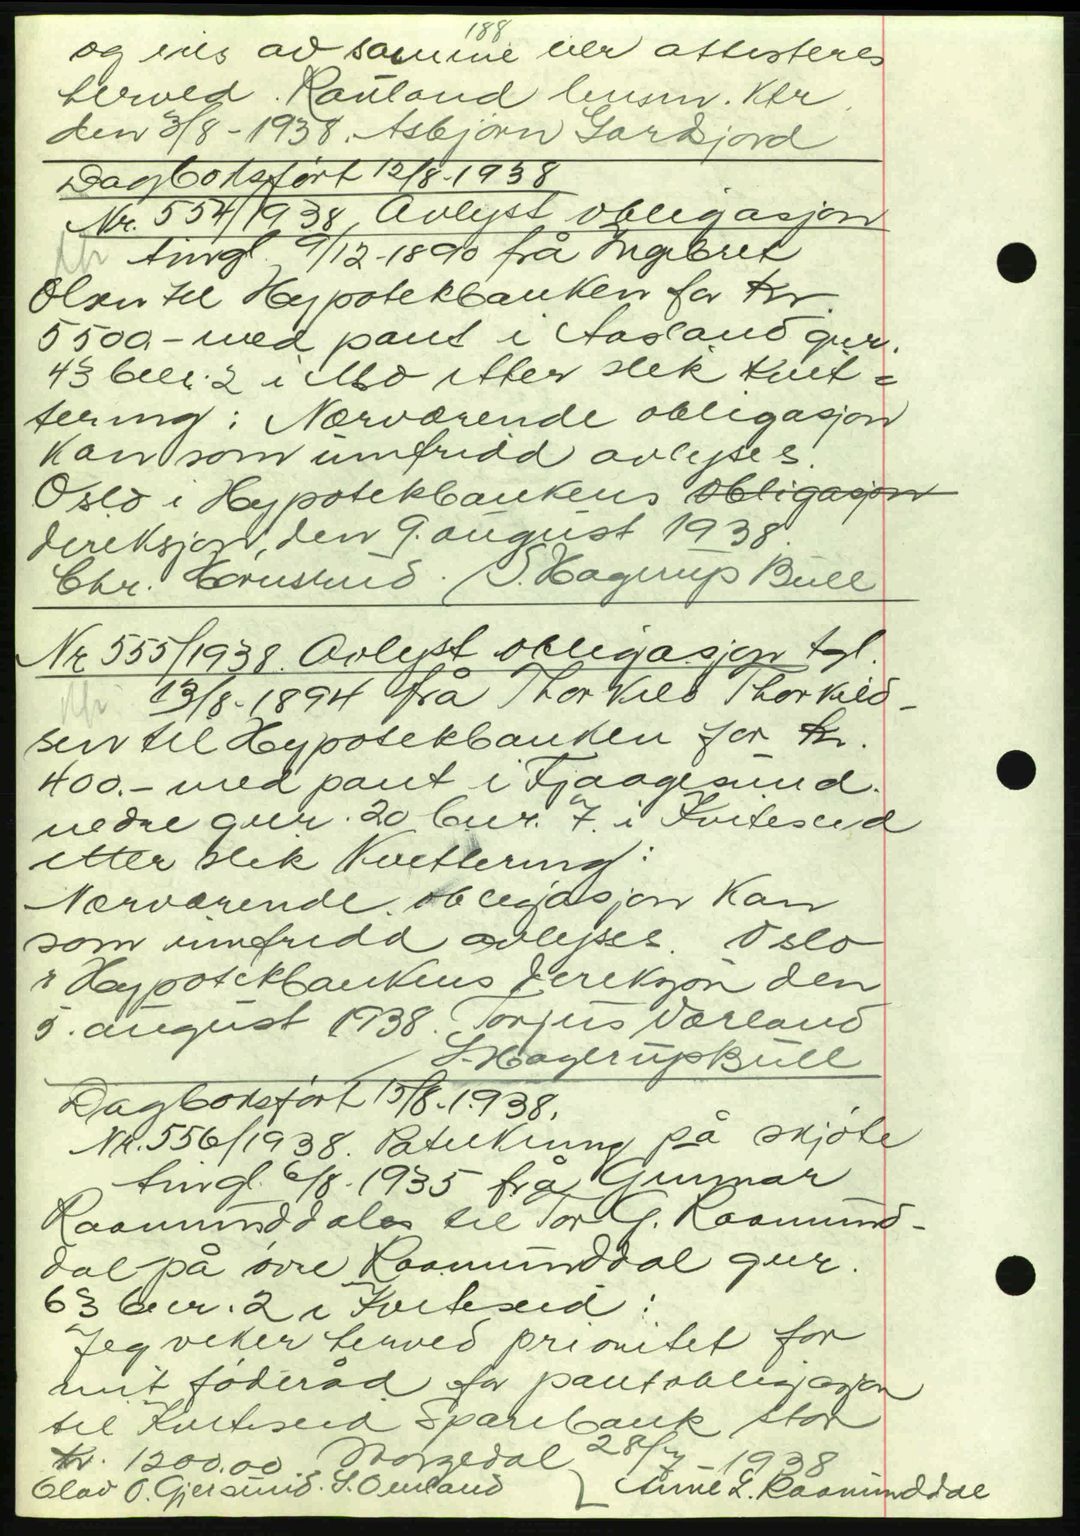 188
og eies av samme eier attesteres
herved. Rauland lensm. Ktr.
den 3/8-1938. Asbjørn Gardsjord
Dagboksført 12/8-1938
Nr. 554/1938. Avlyst obligasjon
tingl. 9/12-1890 frå Ingebret
Olsen til Hypotekbanken for kr.
5500.- med pant i Aasland gnr.
43 bnr. 2 i Mo etter slik kvit=
tering: Nærværende obligasjon
kan som innfridd avlyses.
Oslo i Hypotekbankens obligasjon
direksjon, den 9. august 1938.
Chr. S. Hagerup Bull
Nr 555/1938. Avlyst obligasjon tgl.
13/8-1894 frå Thorkild Thorkild-
sen til Hypotekbanken for kr.
400.- med pant i Fjaagesund
nedre gnr. 20 bnr. 7. i Kviteseid
etter slik kvittering:
Nærværende obligasjon kan
som innfridd avlyses. Oslo
i Hypotekbankens direksjon den
5. august 1938. Torjus Værland
S. Hagerup Bull
Dagboksført 15/8-1938.
Nr. 556/1938. Påteikning på skjøte
tingl. 6/8-1935 frå Gunnar
Raamunddalen til Tor G. Raamund-
dal på øvre Raamunddal gnr.
63 bnr. 2 i Kviteseid:
Jeg viker herved prioritet for
mit føderåd for pantobligasjon
til Kviteseid Sparebank stor
kr. 1200.00 Morgedal 28/7 1938
Olav O. Gjersund. S. Omland Anne L. Raamunddal